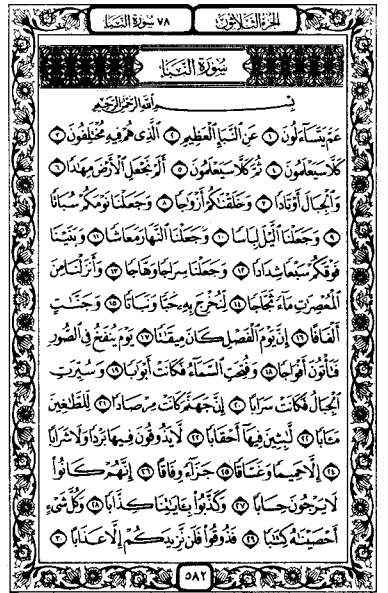 الجزء الثلاثون ٧٨ سورة النبإ
سورة النبإ
بِسْمِ ٱللَّهِ ٱلرَّحْمَٰنِ ٱلرَّحِيمِ
عَمَّ يَتَسَآءَلُونَ ١ عَنِ ٱلنَّبَإِ ٱلْعَظِيمِ ٢ ٱلَّذِى هُمْ فِيهِ مُخْتَلِفُونَ ٣
كَلَّا سَيَعْلَمُونَ ٤ ثُمَّ كَلَّا سَيَعْلَمُونَ ٥ أَلَمْ نَجْعَلِ ٱلْأَرْضَ مِهَٰدًا ٦
وَٱلْجِبَالَ أَوْتَادًا ٧ وَخَلَقْنَٰكُمْ أَزْوَٰجًا ٨ وَجَعَلْنَا نَوْمَكُمْ سُبَاتًا
٩ وَجَعَلْنَا ٱلَّيْلَ لِبَاسًا ١٠ وَجَعَلْنَا ٱلنَّهَارَ مَعَاشًا ١١ وَبَنَيْنَا
فَوْقَكُمْ سَبْعًا شِدَادًا ١٢ وَجَعَلْنَا سِرَاجًا وَهَّاجًا ١٣ وَأَنزَلْنَا مِنَ
ٱلْمُعْصِرَٰتِ مَآءً ثَجَّاجًا ١٤ لِّنُخْرِجَ بِهِۦ حَبًّا وَنَبَاتًا ١٥ وَجَنَّٰتٍ
أَلْفَافًا ١٦ إِنَّ يَوْمَ ٱلْفَصْلِ كَانَ مِيقَٰتًا ١٧ يَوْمَ يُنفَخُ فِى ٱلصُّورِ
فَتَأْتُونَ أَفْوَاجًا ١٨ وَفُتِحَتِ ٱلسَّمَآءُ فَكَانَتْ أَبْوَٰبًا ١٩ وَسُيِّرَتِ
ٱلْجِبَالُ فَكَانَتْ سَرَابًا ٢٠ إِنَّ جَهَنَّمَ كَانَتْ مِرْصَادًا ٢١ لِّلطَّٰغِينَ
مَـَٔابًا ٢٢ لَّٰبِثِينَ فِيهَآ أَحْقَابًا ٢٣ لَّا يَذُوقُونَ فِيهَا بَرْدًا وَلَا شَرَابًا
٢٤ إِلَّا حَمِيمًا وَغَسَّاقًا ٢٥ جَزَآءً وِفَاقًا ٢٦ إِنَّهُمْ كَانُوا۟
لَا يَرْجُونَ حِسَابًا ٢٧ وَكَذَّبُوا۟ بِـَٔايَٰتِنَا كِذَّابًا ٢٨ وَكُلَّ شَىْءٍ
أَحْصَيْنَٰهُ كِتَٰبًا ٢٩ فَذُوقُوا۟ فَلَن نَّزِيدَكُمْ إِلَّا عَذَابًا ٣٠
٥٨٢